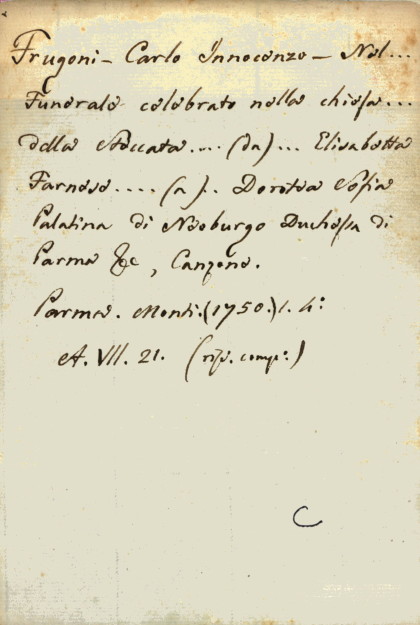 Frugoni - Carlo Innocenzo - Nel...
Funerale celebrato nella chiesa...
della Steccata.... (da)... Elisabetta
Farnese.... (a).. Dorotea Sofia
Palatina di Neoburgo Duchessa di
Parma &c, Canzone.
Parma. Monti. (1750.) 4°:
A. VII. 21. (
C